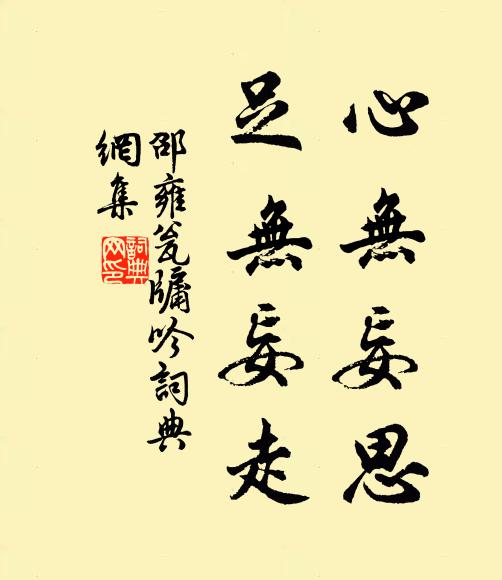 心無妄思
足無妄走
邵雍瓮牖吟詞典
網集
詞典
网印